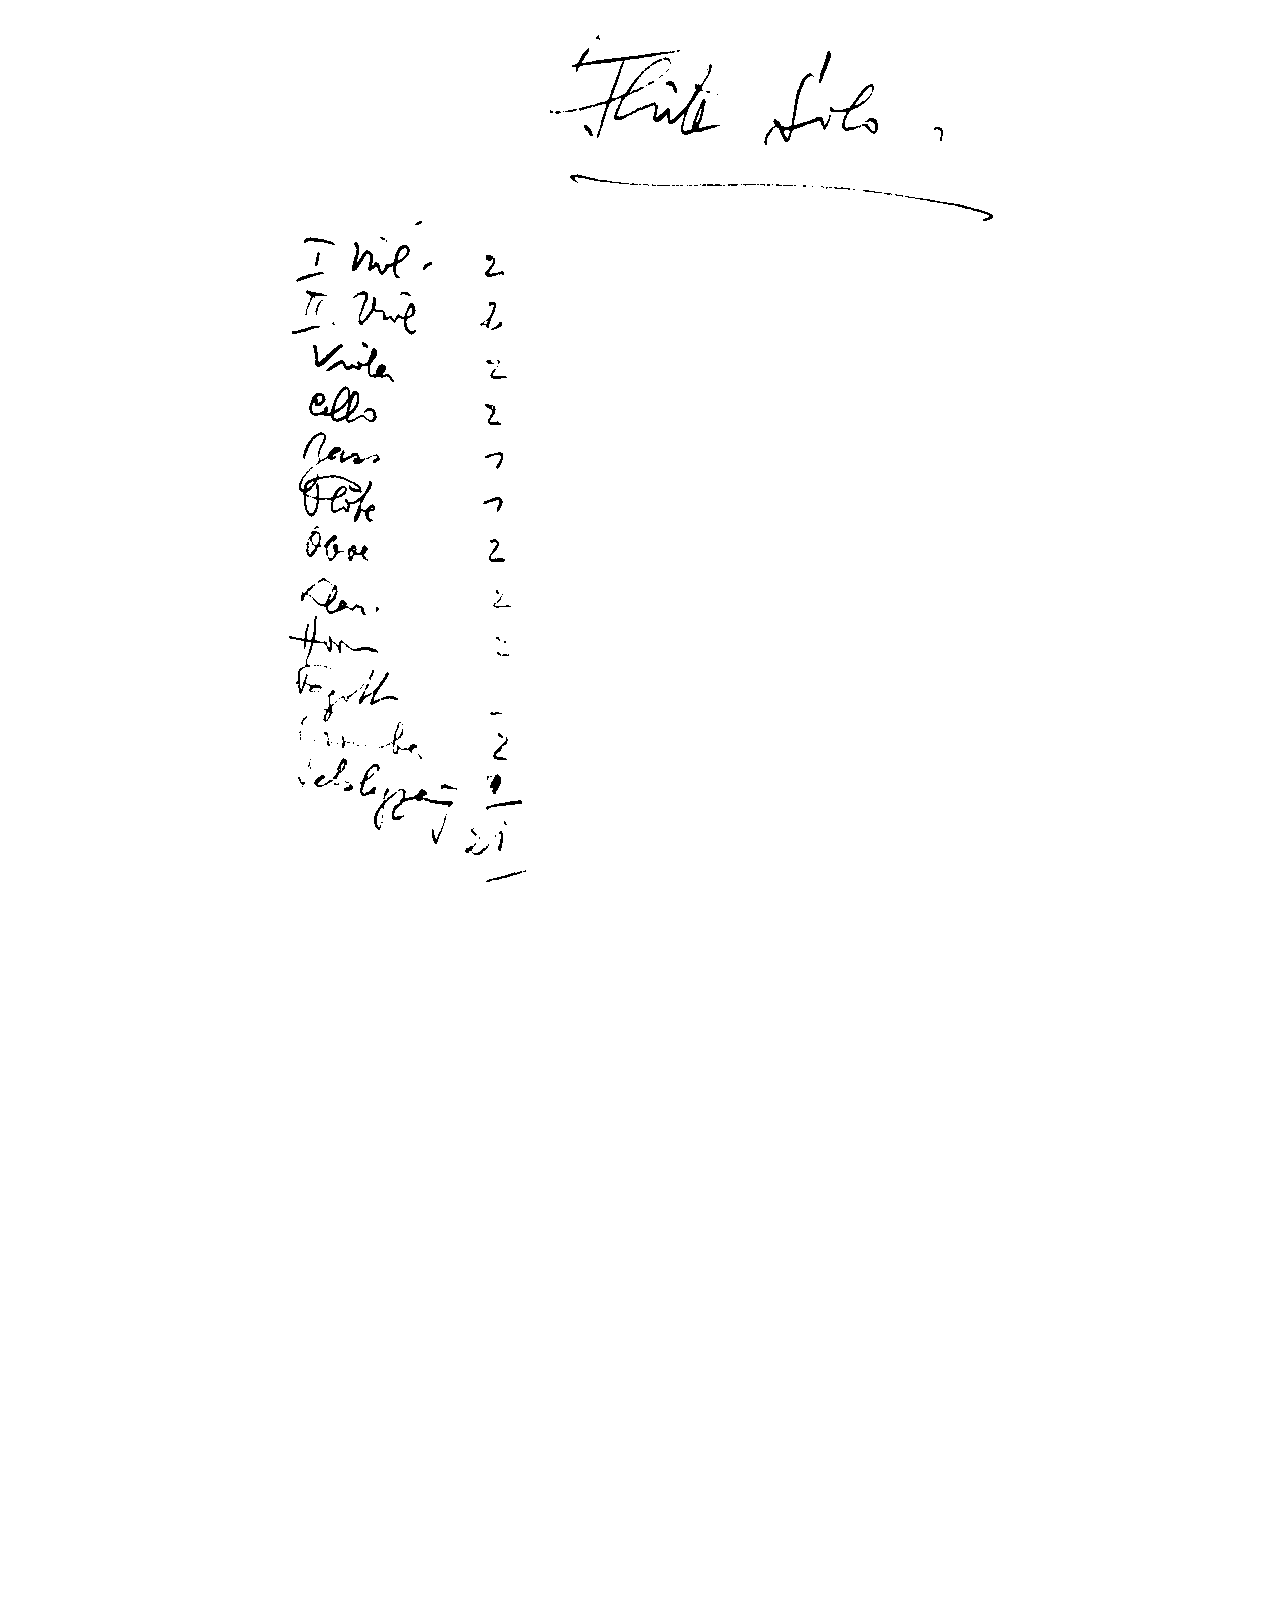 Flöte Solo.
I Viol. 2
II. Viol 2
Viola 2
Cello 2
Bass 1
Flöte 1
Oboe 2
Klar. 2
Horn 2
Fagott -
Tromba 2
Schlagzeug 1
21